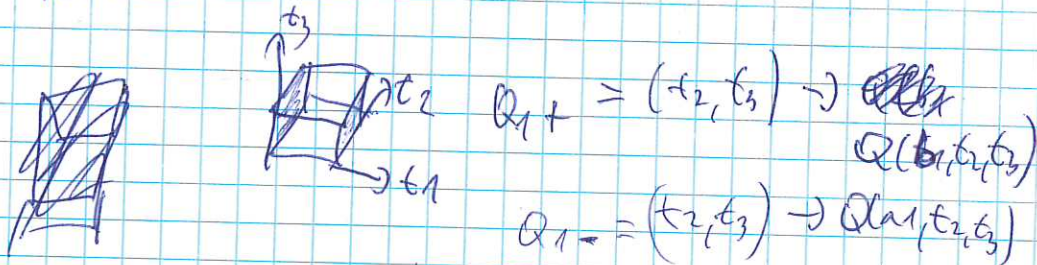 t3
t2
t1
Q1+ = (t2, t3) →
Q(b1, t2, t3)
Q1- = (t2, t3) → Q(a1, t2, t3)